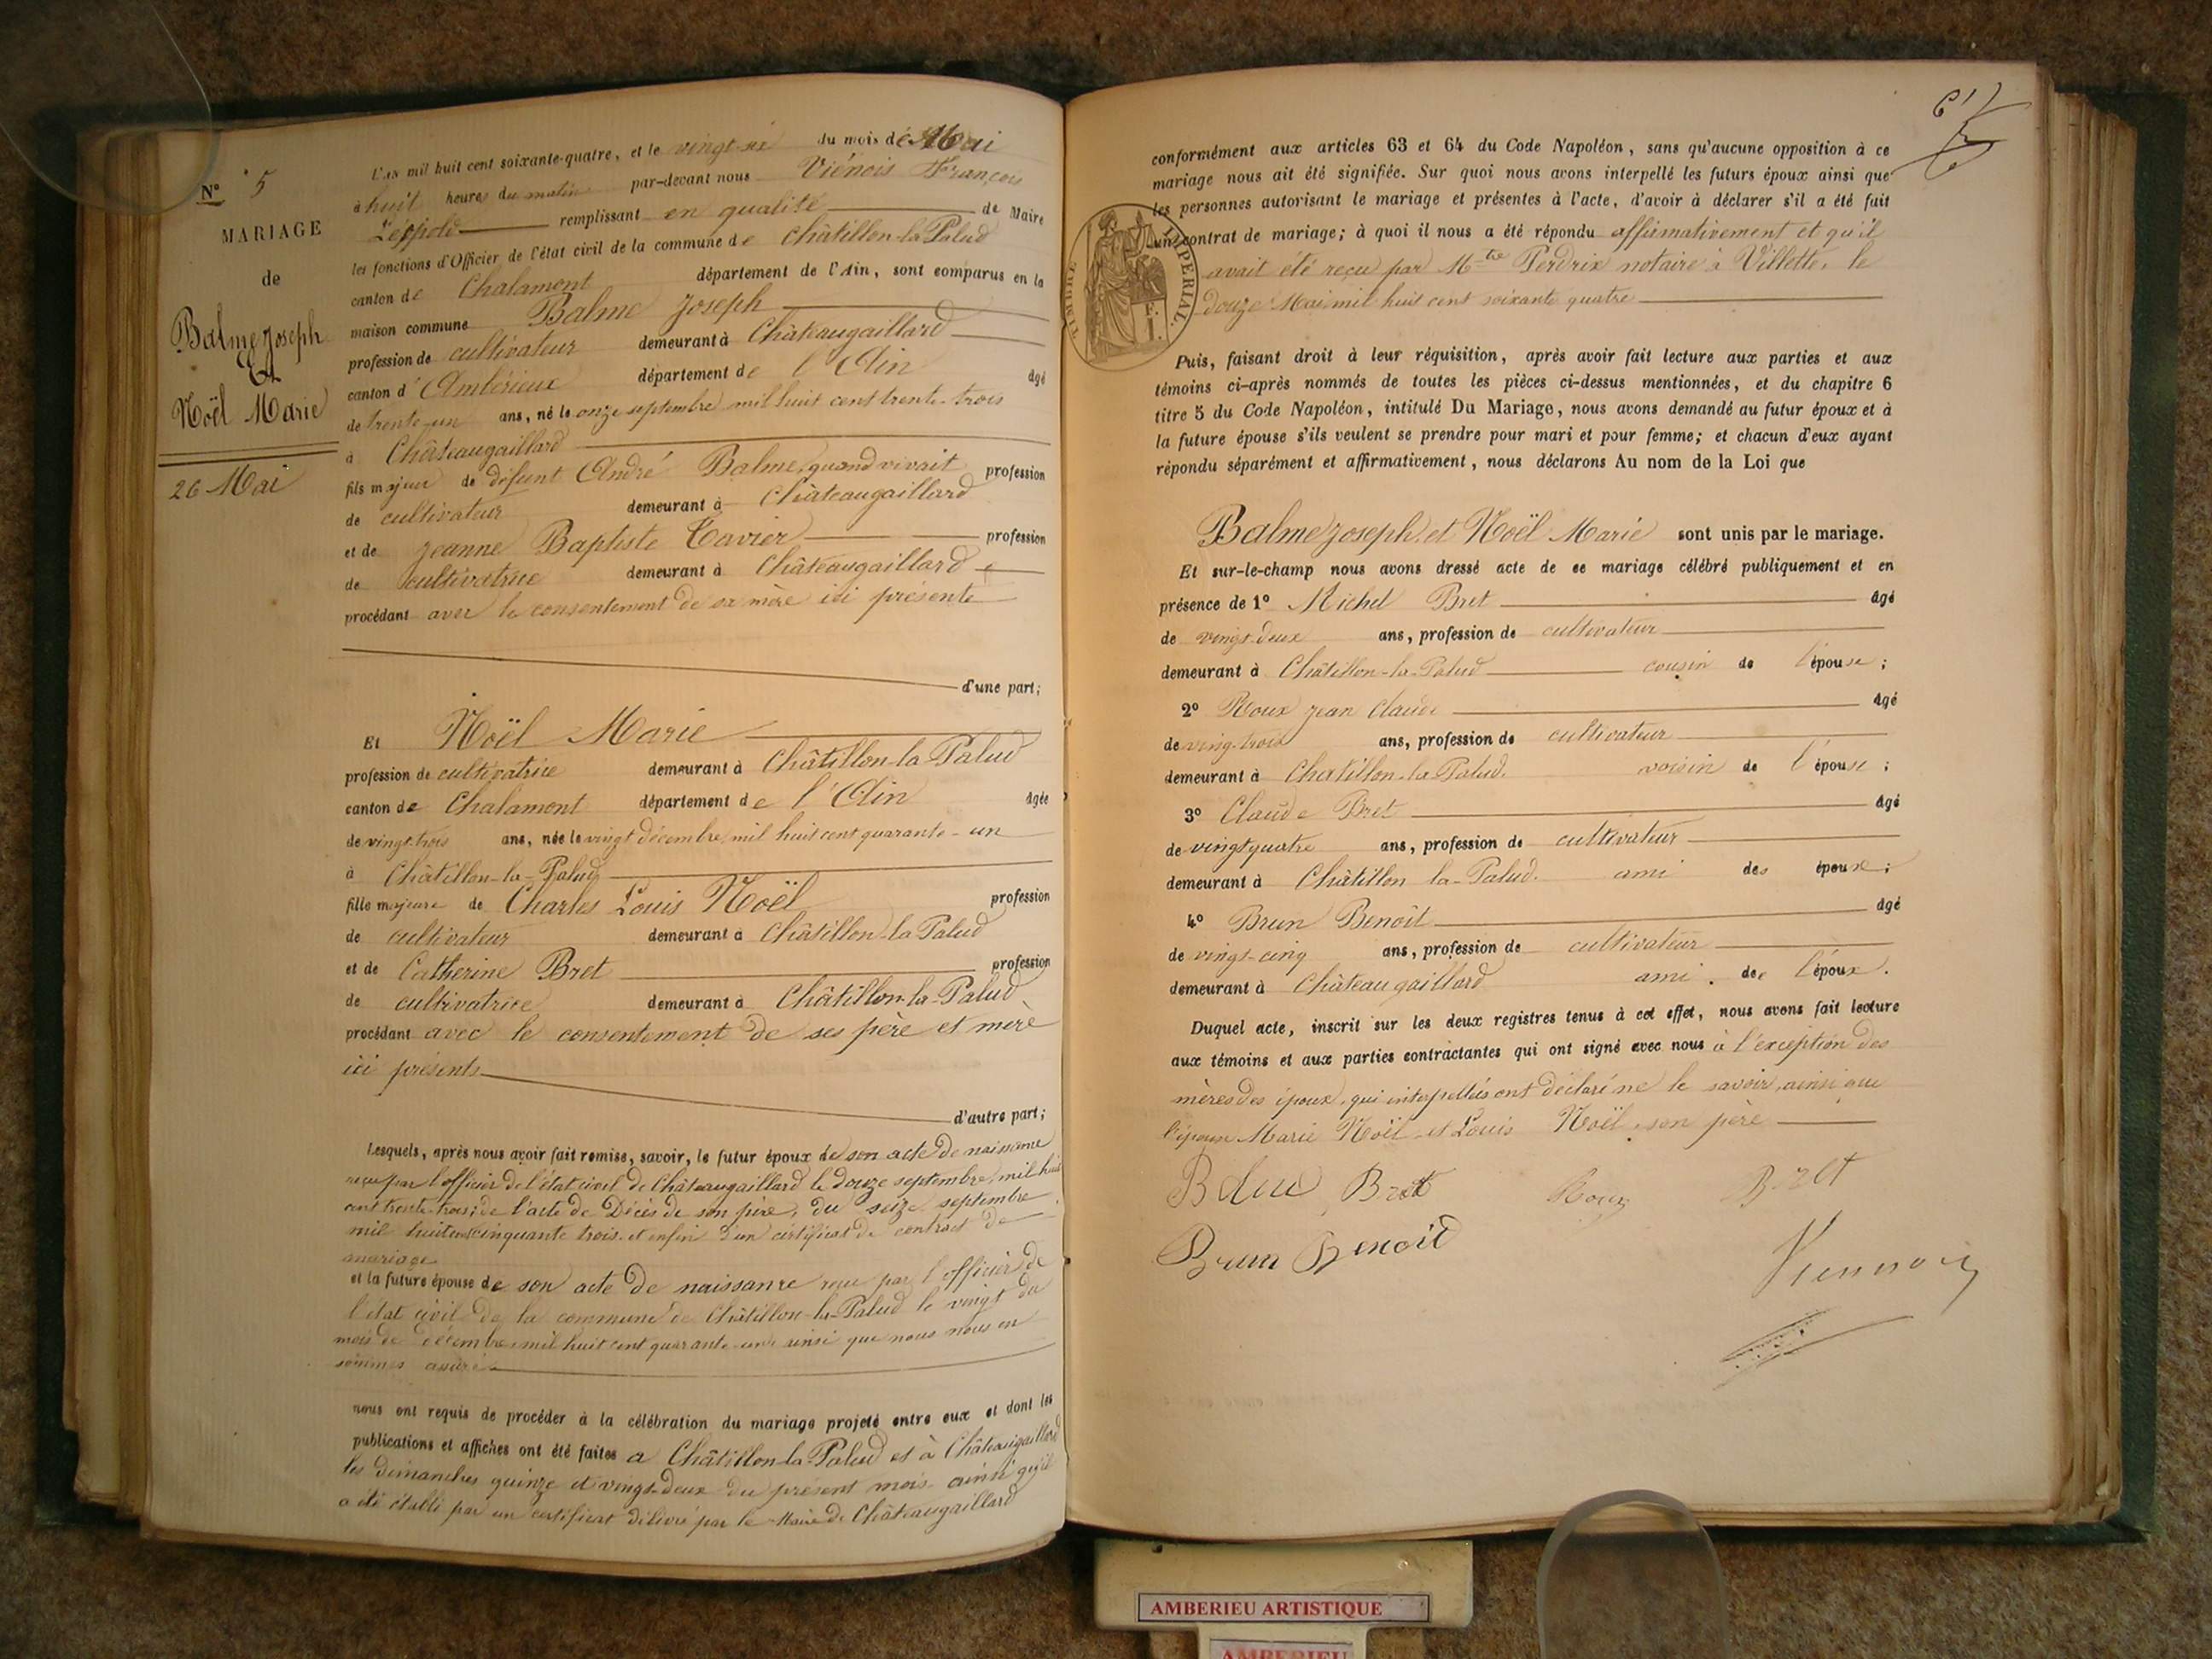 N° 5
MARIAGE
de
Balme Joseph
Et
Noël Marie
26 Mai
L'an mil huit cent soixante-quatre, et le vingt-six du mois de Mai
à huit heures du matin par-devant nous Viénois François
Léopold remplissant en qualité de Maire
les fonctions d'Officier de l'état civil de la commune de Châtillon-la-Palud
canton de Chalamont département de l'Ain, sont comparus en la
maison commune Balme Joseph
profession de cultivateur demeurant à Châteaugaillard
canton d'Ambérieux département de l'Ain âgé
de trente-un ans, né le onze septembre mil huit cent trente-trois
à Châteaugaillard
fils majeur de défunt André Balme, quand vivait profession
de cultivateur demeurant à Châteaugaillard
et de Jeanne Baptiste Tavier profession
de cultivatrice demeurant à Châteaugaillard
procédant avec le consentement de sa mère ici présente
d'une part;
Et Noël Marie
profession de cultivatrice demeurant à Châtillon-la-Palud
canton de Chalamont département de l'Ain âgée
de vingt-trois ans, née le vingt décembre mil huit cent quarante-un
à Châtillon-la-Palud
fille majeure de Charles Louis Noël profession
de cultivateur demeurant à Châtillon-la-Palud
et de Catherine Bret profession
de cultivatrice demeurant à Châtillon-la-Palud
procédant avec le consentement de ses père et mère
ici présents
d'autre part;
Lesquels, après nous avoir fait remise, savoir, le futur époux de son acte de naissance
reçu par l'officier de l'état civil de Châteaugaillard le douze septembre mil huit
cent trente-trois; de l'acte de Décès de son père, du seize septembre
mil huit cent cinquante trois et enfin d'un certificat de contrat de
mariage
et la future épouse de son acte de naissance reçu par l'officier de
l'état civil de la commune de Châtillon-la-Palud le vingt du
mois de décembre mil huit cent quarante-un ainsi que nous nous en
sommes assurés
nous ont requis de procéder à la célébration du mariage projeté entre eux et dont les
publications et affiches ont été faites à Châtillon-la-Palud et à Châteaugaillard
les dimanches quinze et vingt-deux du présent mois ainsi qu'il
a été établi par un certificat délivré par le Maire de Châteaugaillard
conformément aux articles 63 et 64 du Code Napoléon, sans qu'aucune opposition à ce
mariage nous ait été signifiée. Sur quoi nous avons interpellé les futurs époux ainsi que
les personnes autorisant le mariage et présentes à l'acte, d'avoir à déclarer s'il a été fait
un contrat de mariage; à quoi il nous a été répondu affirmativement et qu'il
avait été reçu par Mtre Perdrix notaire à Villette, le
douze Mai mil huit cent soixante quatre
TIMBRE IMPERIAL.
Puis, faisant droit à leur réquisition, après avoir fait lecture aux parties et aux
témoins ci-après nommés de toutes les pièces ci-dessus mentionnées, et du chapitre 6
titre 5 du Code Napoléon, intitulé Du Mariage, nous avons demandé au futur époux et à
la future épouse s'ils veulent se prendre pour mari et pour femme; et chacun d'eux ayant
répondu séparément et affirmativement, nous déclarons Au nom de la Loi que
Balme Joseph et Noël Marie sont unis par le mariage.
Et sur-le-champ nous avons dressé acte de ce mariage célébré publiquement et en
présence de 1° Michel Bret âgé
de vingt-deux ans, profession de cultivateur
demeurant à Châtillon-la-Palud cousin de l'épouse;
2° Roux Jean Claude âgé
de vingt-trois ans, profession de cultivateur
demeurant à Chatillon-la-Palud. voisin de l'épouse;
3° Claude Bret âgé
de vingt quatre ans, profession de cultivateur
demeurant à Châtillon la-Palud. ami des époux;
4° Brun Benoît âgé
de vingt-cinq ans, profession de cultivateur
demeurant à Châteaugaillard ami de l'époux.
Duquel acte, inscrit sur les deux registres tenus à cet effet, nous avons fait lecture
aux témoins et aux parties contractantes qui ont signé avec nous à l'exception des
mères des époux, qui interpellées ont déclaré ne le savoir, ainsi que
l'épouse Marie Noël et Louis Noël, son père
Bret Roux Bret
Brun Benoit
AMBERIEU ARTISTIQUE
AMBERIEU